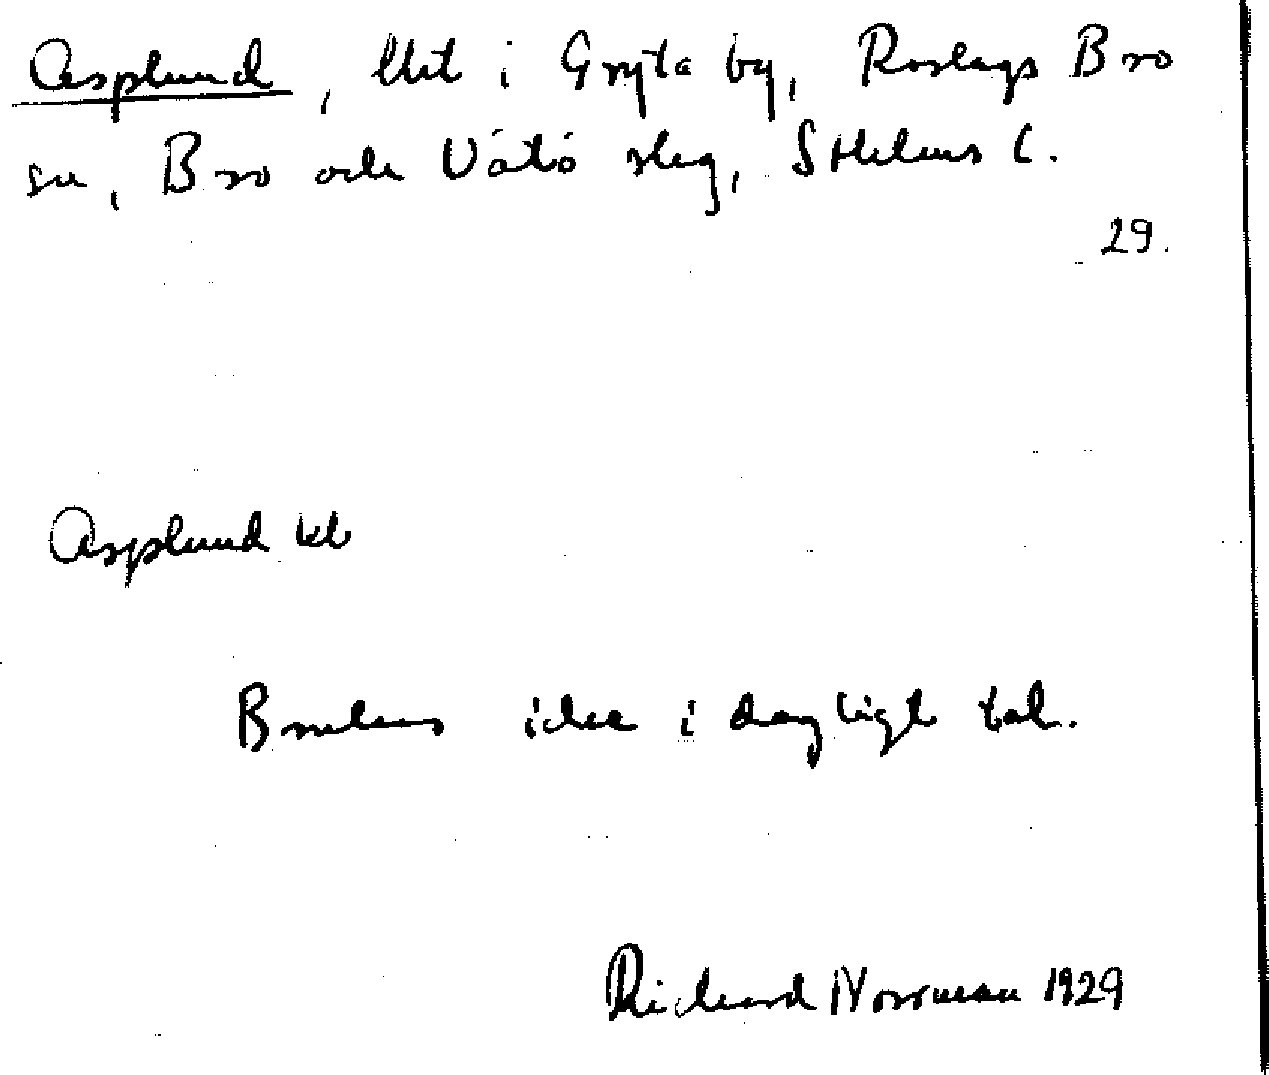 Asplund, lht i Gryta by, Roslags Bro
sn, Bro och Vätö skg, Sthlms l.
29.
Asplund kl
Brukas icke i dagligt tal.
Richard Norrman 1929